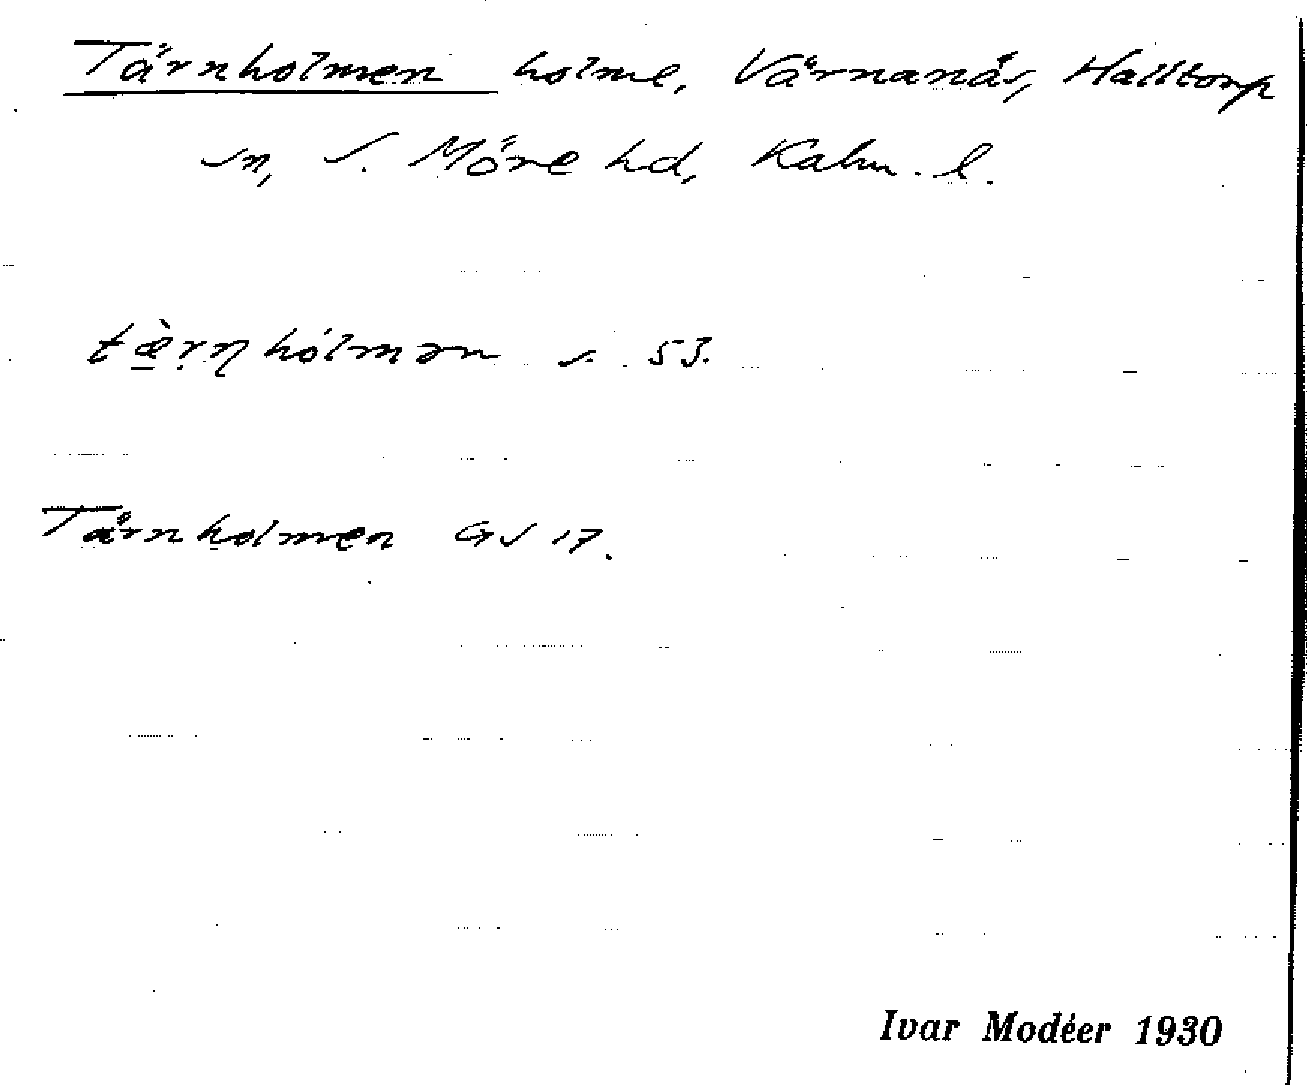 Tärnholmen holme, Värnanäs, Halltorp
sn, S. Möre hd, Kalm. l.
tæ̀rn hólmən s. 53.
Tärnholmen GS 17.
Ivar Modéer 1930